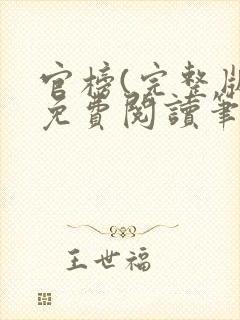 官榜(完整版
免費閱讀筆
王世福